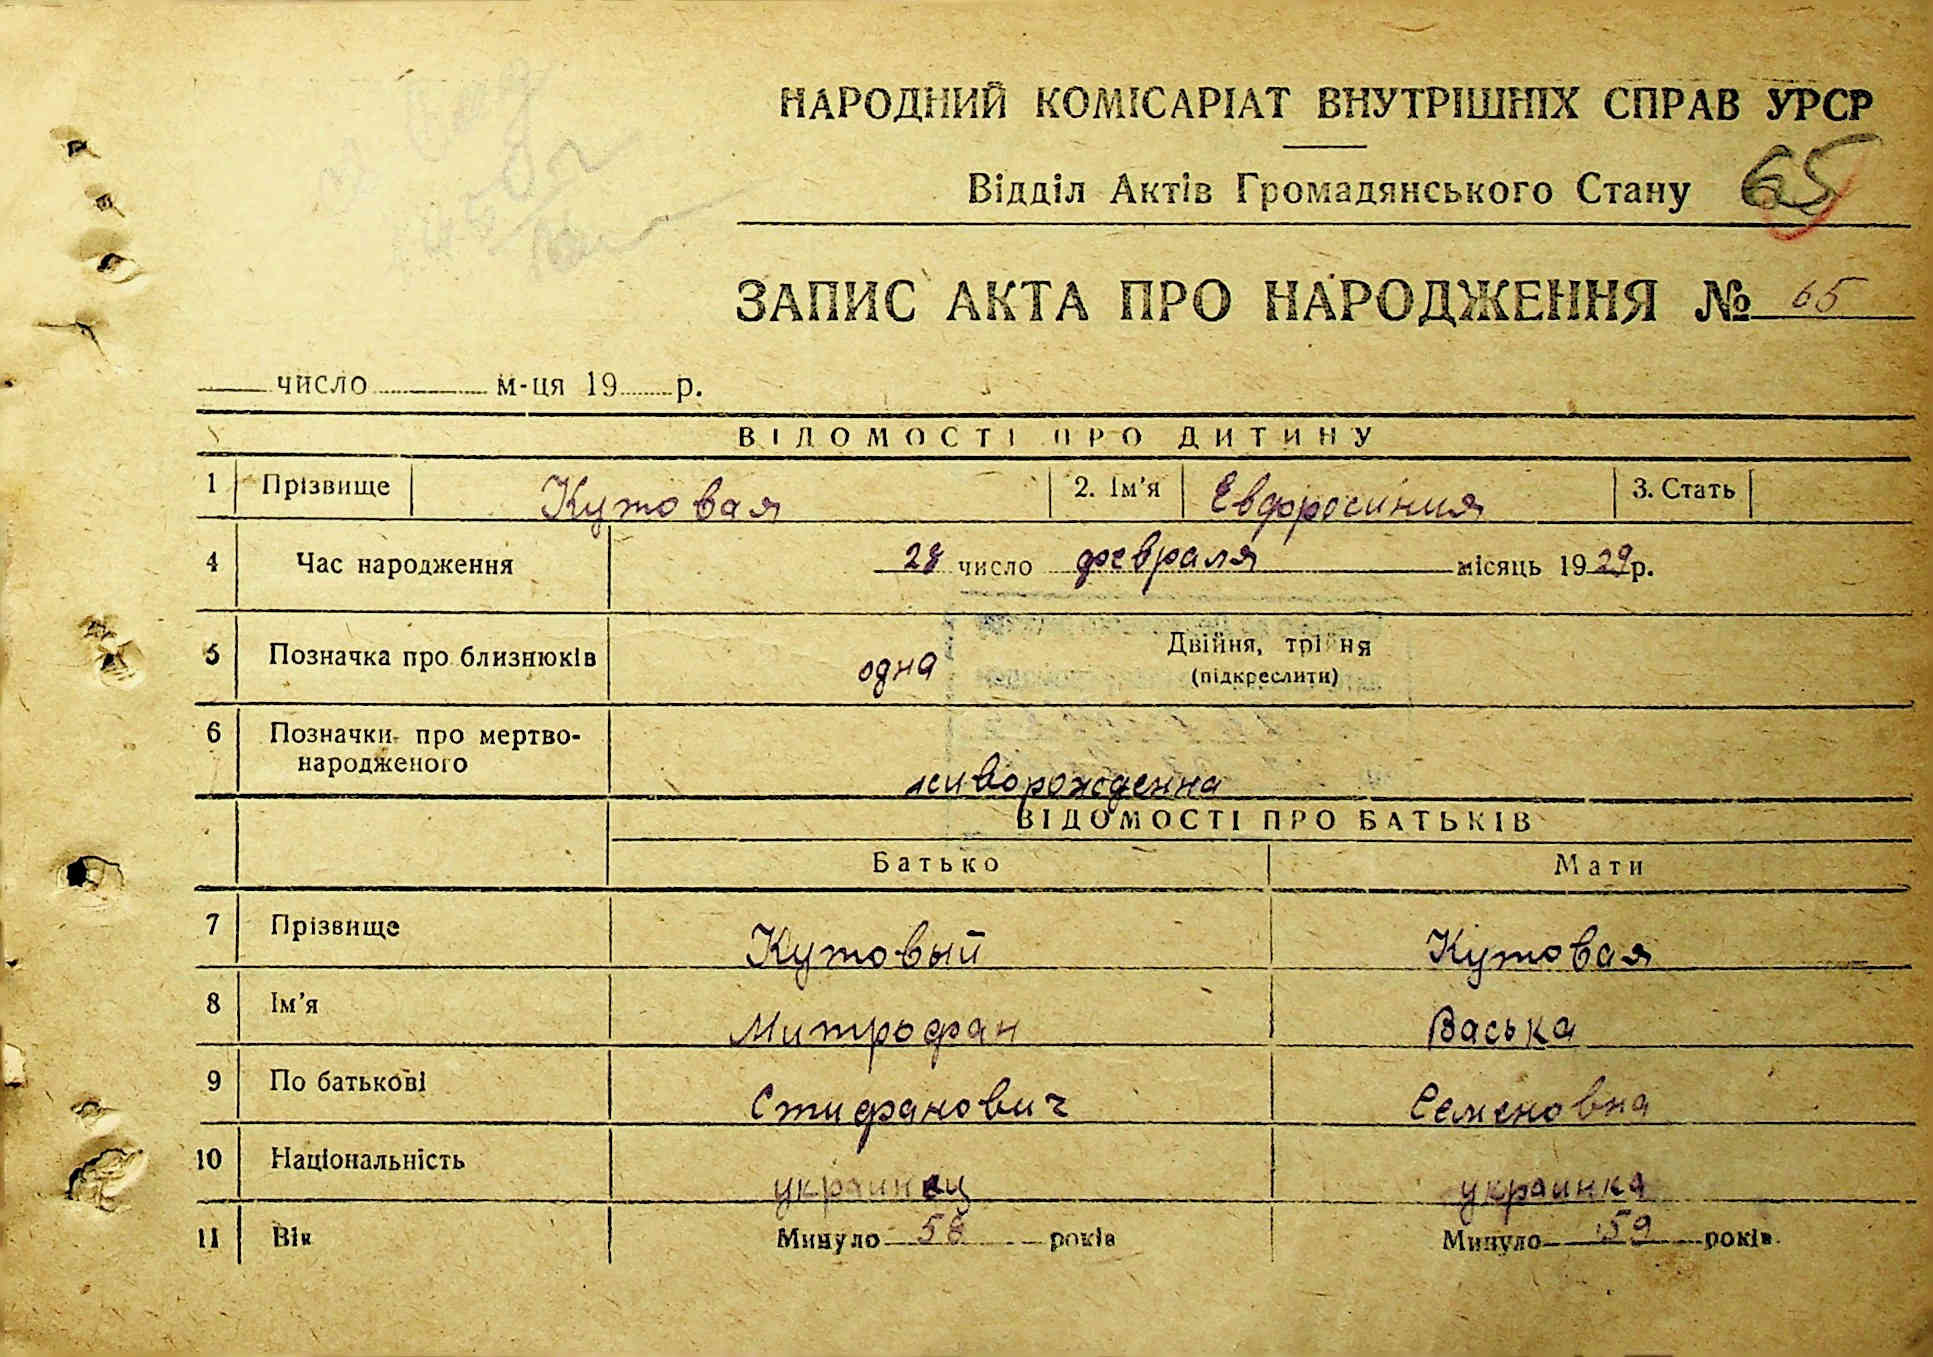 НАРОДНИЙ КОМІСАРІАТ ВНУТРІШНІХ СПРАВ УРСР
Відділ Актів Громадянського Стану 65
ЗАПИС АКТА ПРО НАРОДЖЕННЯ № 65
число м-ця 19 р.
ВІДОМОСТІ ПРО ДИТИНУ
1 Прізвище Кутовая 2. Ім'я Евфросиния 3. Стать
4 Час народження 28 число февраля місяць 1929 р.
5 Позначка про близнюків одна Двійня, трійня
(підкреслити)
6 Позначки про мертво-
народженого
живорожденна
ВІДОМОСТІ ПРО БАТЬКІВ
Батько Мати
7 Прізвище Кутовый Кутовая
8 Ім'я Митрофан Васька
9 По батькові Стифанович Семеновна
10 Національність украинец украинка
11 Вік Минуло 58 років Минуло 59 років